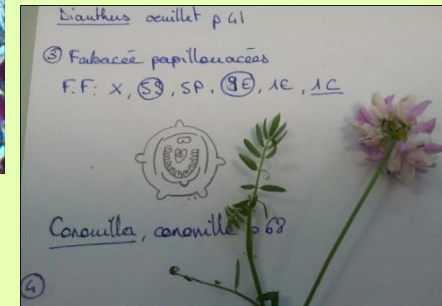 Dianthus oeuillet p 41
③ Fabacée papillonacées
F.F: X, 5S, 5P, 9E, 1E, 1C
Coronilla, coronille p 68
④